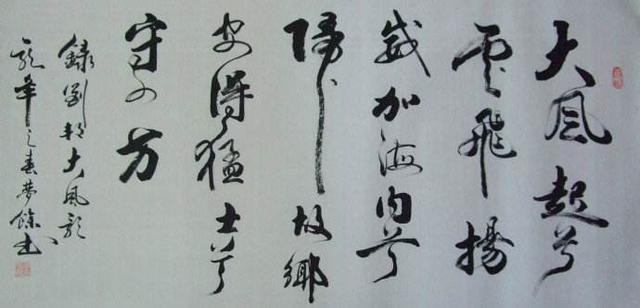 大風起兮
雲飛揚
威加海内兮
歸故鄉
安得猛士兮
守四方
錄劉邦大風歌
龍年之春夢餘書